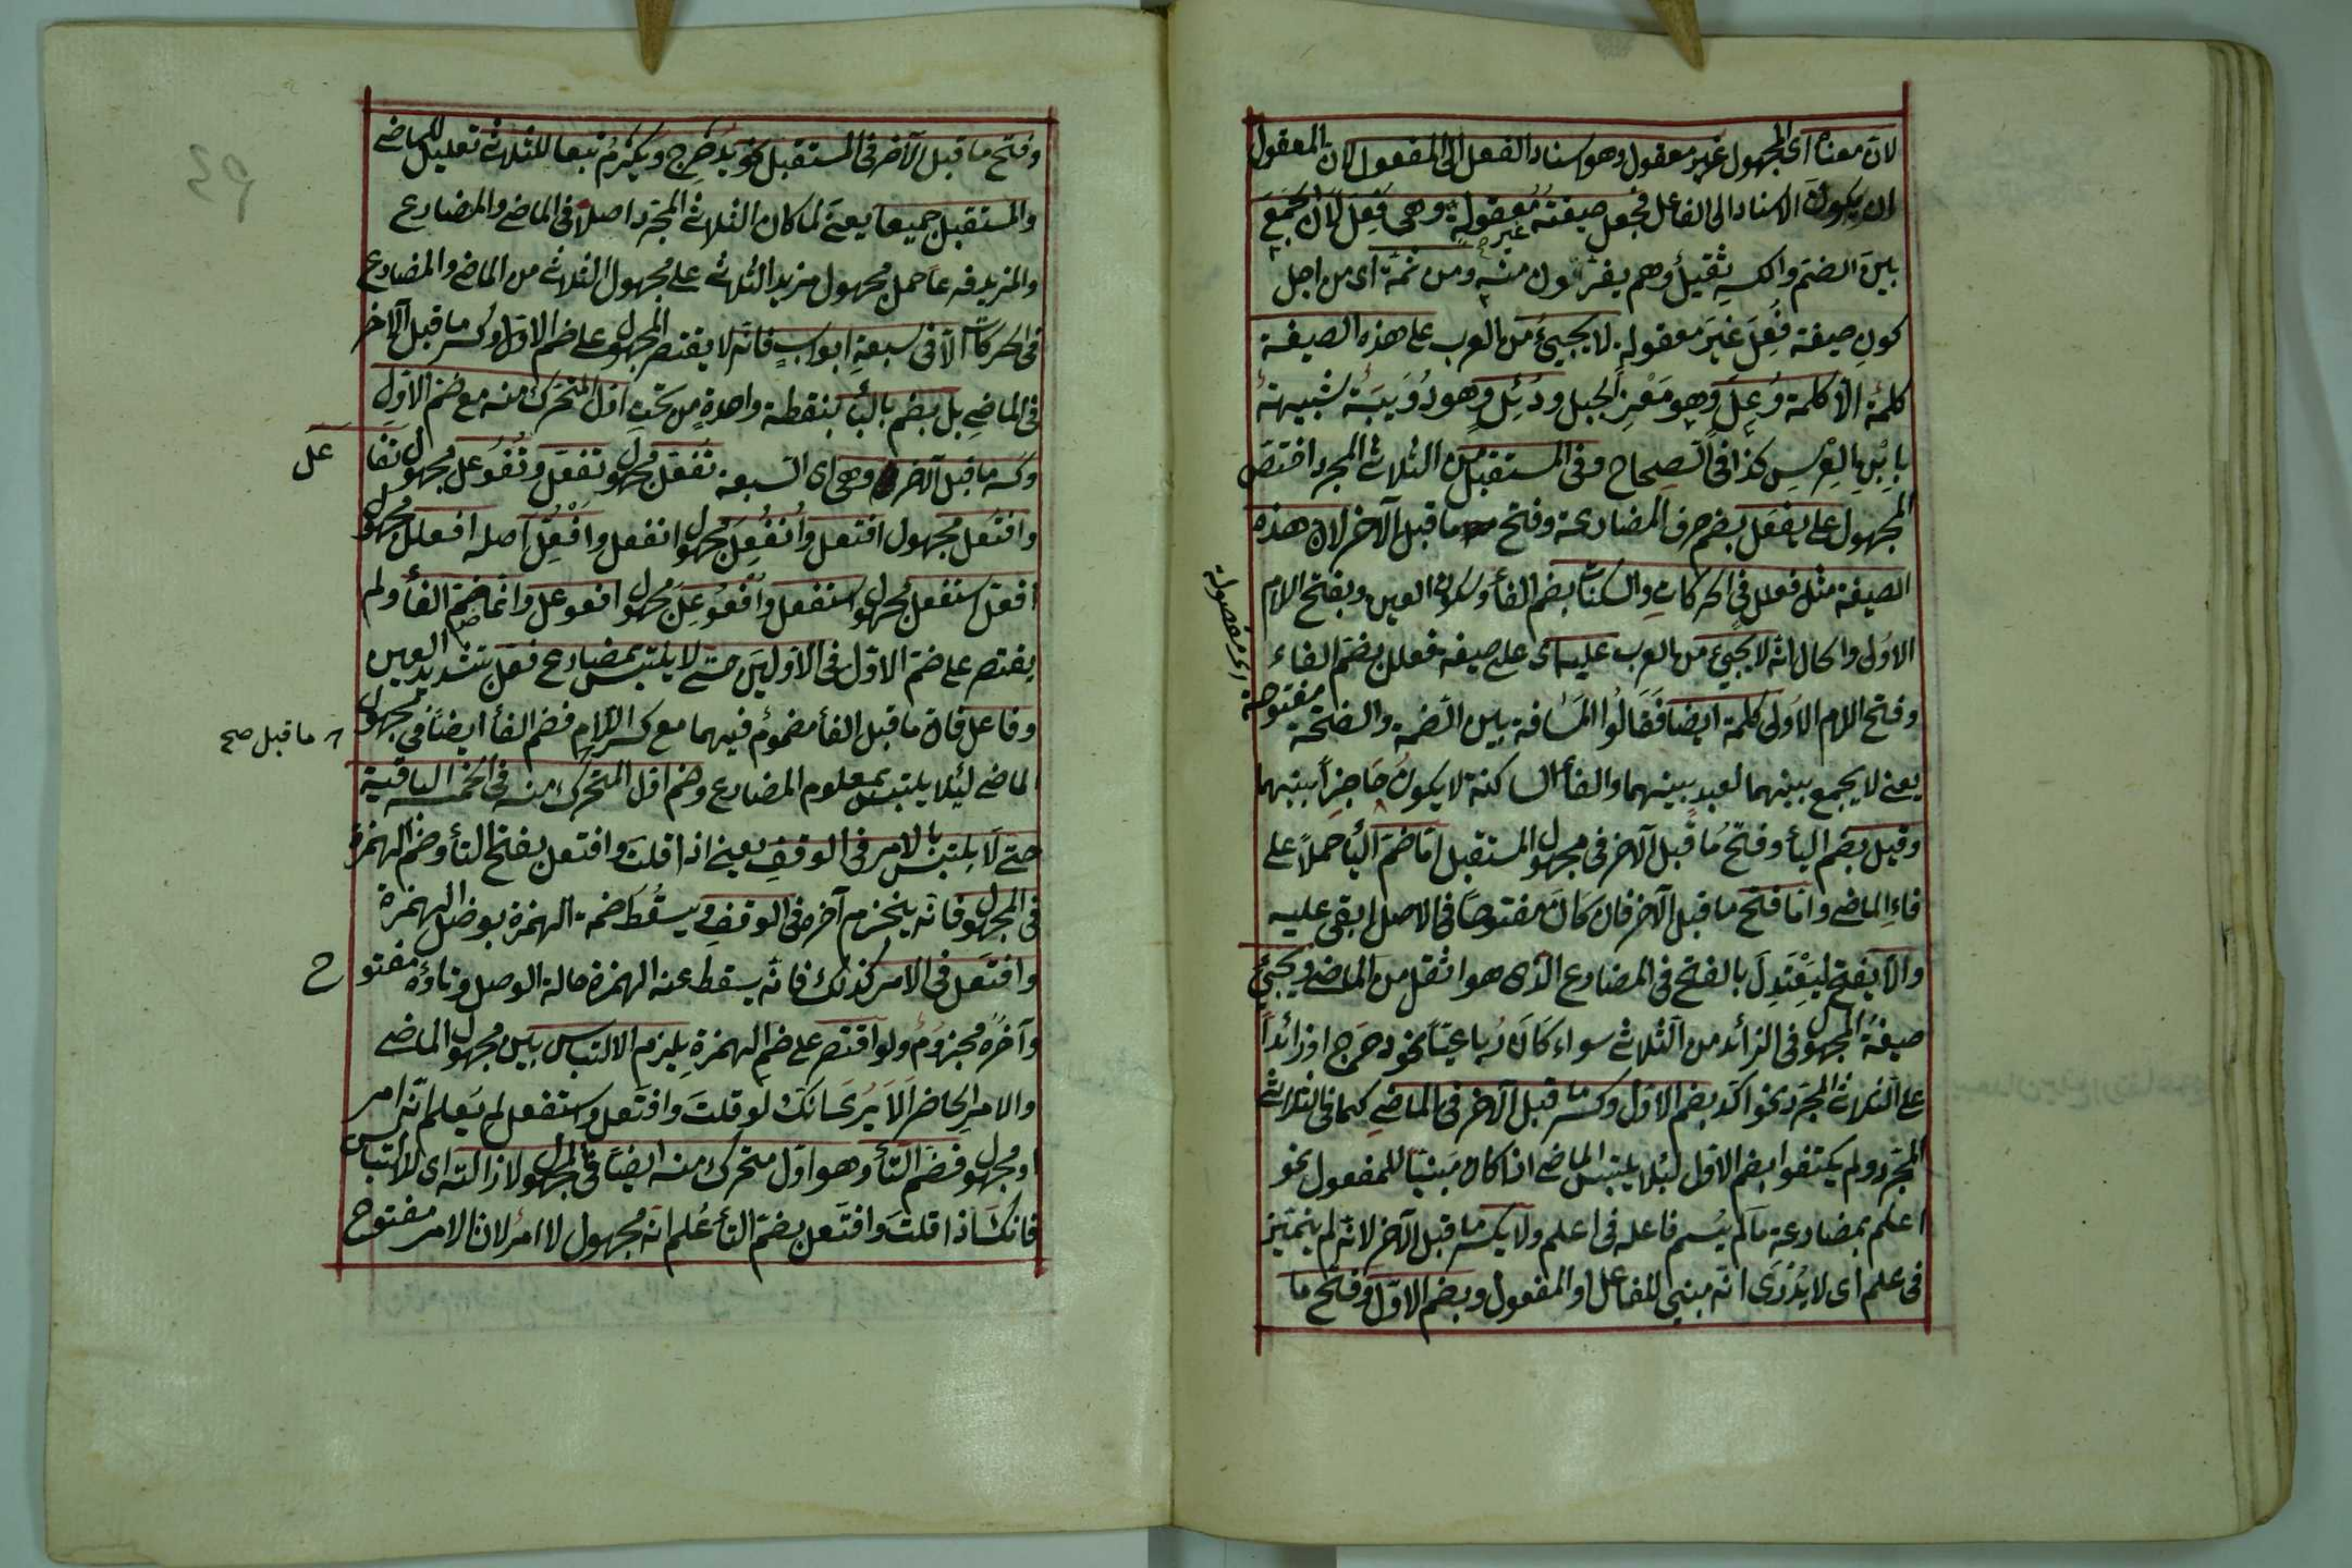 لان معناه اى المجهول غير معقول وهو اسناد الفعل الى المفعول لان المعقول
ان يكون الاسناد الى الفاعل فجعل صيغته غير معقولة وهى فُعِلَ لان الجمع
بين الضم والكسر ثقيل وهم يفرّون منه ومن ثمة اى من اجل
كون صيغة فُعِلَ غير معقولة لا يجيئ من العرب على هذه الصيغة
كلمة الا كلمة وُعِلَ وهو مَعْز الجبل ودُئِل وهو دُوَيبَة شبيهة
بابن العرس كذا فى الصحاح وفى المستقبل من الثلاثى المجرد اختص
المجهول على يفعل بضم حرف المضارعة وفتح ما قبل الآخر لان هذه
الصيغة مثل فعلل فى الحركات والسكنات بضم الفاء وسكون العين وبفتح اللام
الاولى والحال انه لا يجيئ من العرب عليه اى على صيغة فعلل بضم الفاء
وفتح اللام الاولى كلمة ايضا فقالوا المسافة بين الضمة والفتحة
مفتوحة اى مفصولة
يعنى لا يجمع بينهما لبعد بينهما والفاء الساكنة لا يكون حاجزاً بينهما
وقيل بضم الياء وفتح ما قبل الآخر فى مجهول المستقبل اما ضم الياء حملاً على
فاء الماضى واما فتح ما قبل الآخر فان كان مفتوحاً فى الاصل ابقى عليه
والا يفتح ليَعْتَدِلَ بالفتح فى المضارع الذى هو اثقل من الماضى ويجيئ
صيغة المجهول فى الزائد من الثلاثى سواء كان رباعيّاً نحو دحرج او زائداً
على الثلاثى المجرد نحو اكرم بضم الاول وكسر ما قبل الآخر فى الماضى كما فى الثلاثى
المجرد ولم يكتفوا بضم الاول لئلا يلتبس الماضى اذا كان مبنيّاً للمفعول نحو
اعلم بمضارعة ما لم يسم فاعله فى اعلم ولا يكسر ما قبل الآخر لانه لم يتميز
فى علم اى لا يُدْرَى انه مبنى للفاعل او المفعول وبضم الاول وفتح ما
وفتح ما قبل الآخر فى المستقبل نحو يدحرج ويكرم تبعا للثلاثى تعليل للماضى
والمستقبل جميعا يعنى لما كان الثلاثى المجرد اصلا فى الماضى والمضارع
والمزيد فرعاً حمل مجهول مزيد الثلاثى على مجهول الثلاثى من الماضى والمضارع
فى الحركات الا فى سبعة ابواب فانه لا يقتصر المجهول على ضم الاول وكسر ما قبل الآخر
فى الماضى بل بضم بالباء بنقطة واحدة من تحت اول المتحرك منه مع ضم الاول
وكسر ما قبل الآخر وهى اى السبعة تُفُعّل مجهول تفعّل وتُفُوعل مجهول تفا عل
وافتعل مجهول افتعل وانفُعِل مجهول انفعل وافعُلّ اصله افعلل مجهول
افعلّ استفعل مجهول استفعل وافعُوعِل مجهول افعوعل وانما ضم الفاء ولم
يقتصر على ضم الاول فى الاوليين حتى لا يلتبس بمضارع فعّل بتشديد العين
وفاعل فان ما قبل الفاء مضموم فيهما مع كسر اللام فضم الفاء ايضاً فى مجهول
ما قبل صح
الماضى لئلا يلتبس بمعلوم المضارع وضم اول المتحرك منه فى الخمسة الباقية
حتى لا يلتبس بالامر فى الوقف يعنى اذا قلت وافتعل بفتح التاء وضم الهمزة
فى المجهول فانه ينجزم آخره فى الوقف ويسقط ضمة الهمزة بوصل الهمزة
وافتعل فى الامر كذلك فانه يسقط عنه الهمزة حالة الوصل وتاؤه مفتو ح
وآخره مجزوم ولو اقتصر على ضم الهمزة يلزم الالتباس بين مجهول الماضى
والامر الحاضر الا يرى انك لو قلت وافتعل واستفعل لم يعلم انه امر
او مجهول فضم التاء وهو اول متحرك منه ايضاً فى المجهول لازالته اى الالتباس
فانك اذا قلت وافتعل بضم التاء عُلم انه مجهول لا امر لان الامر مفتوح